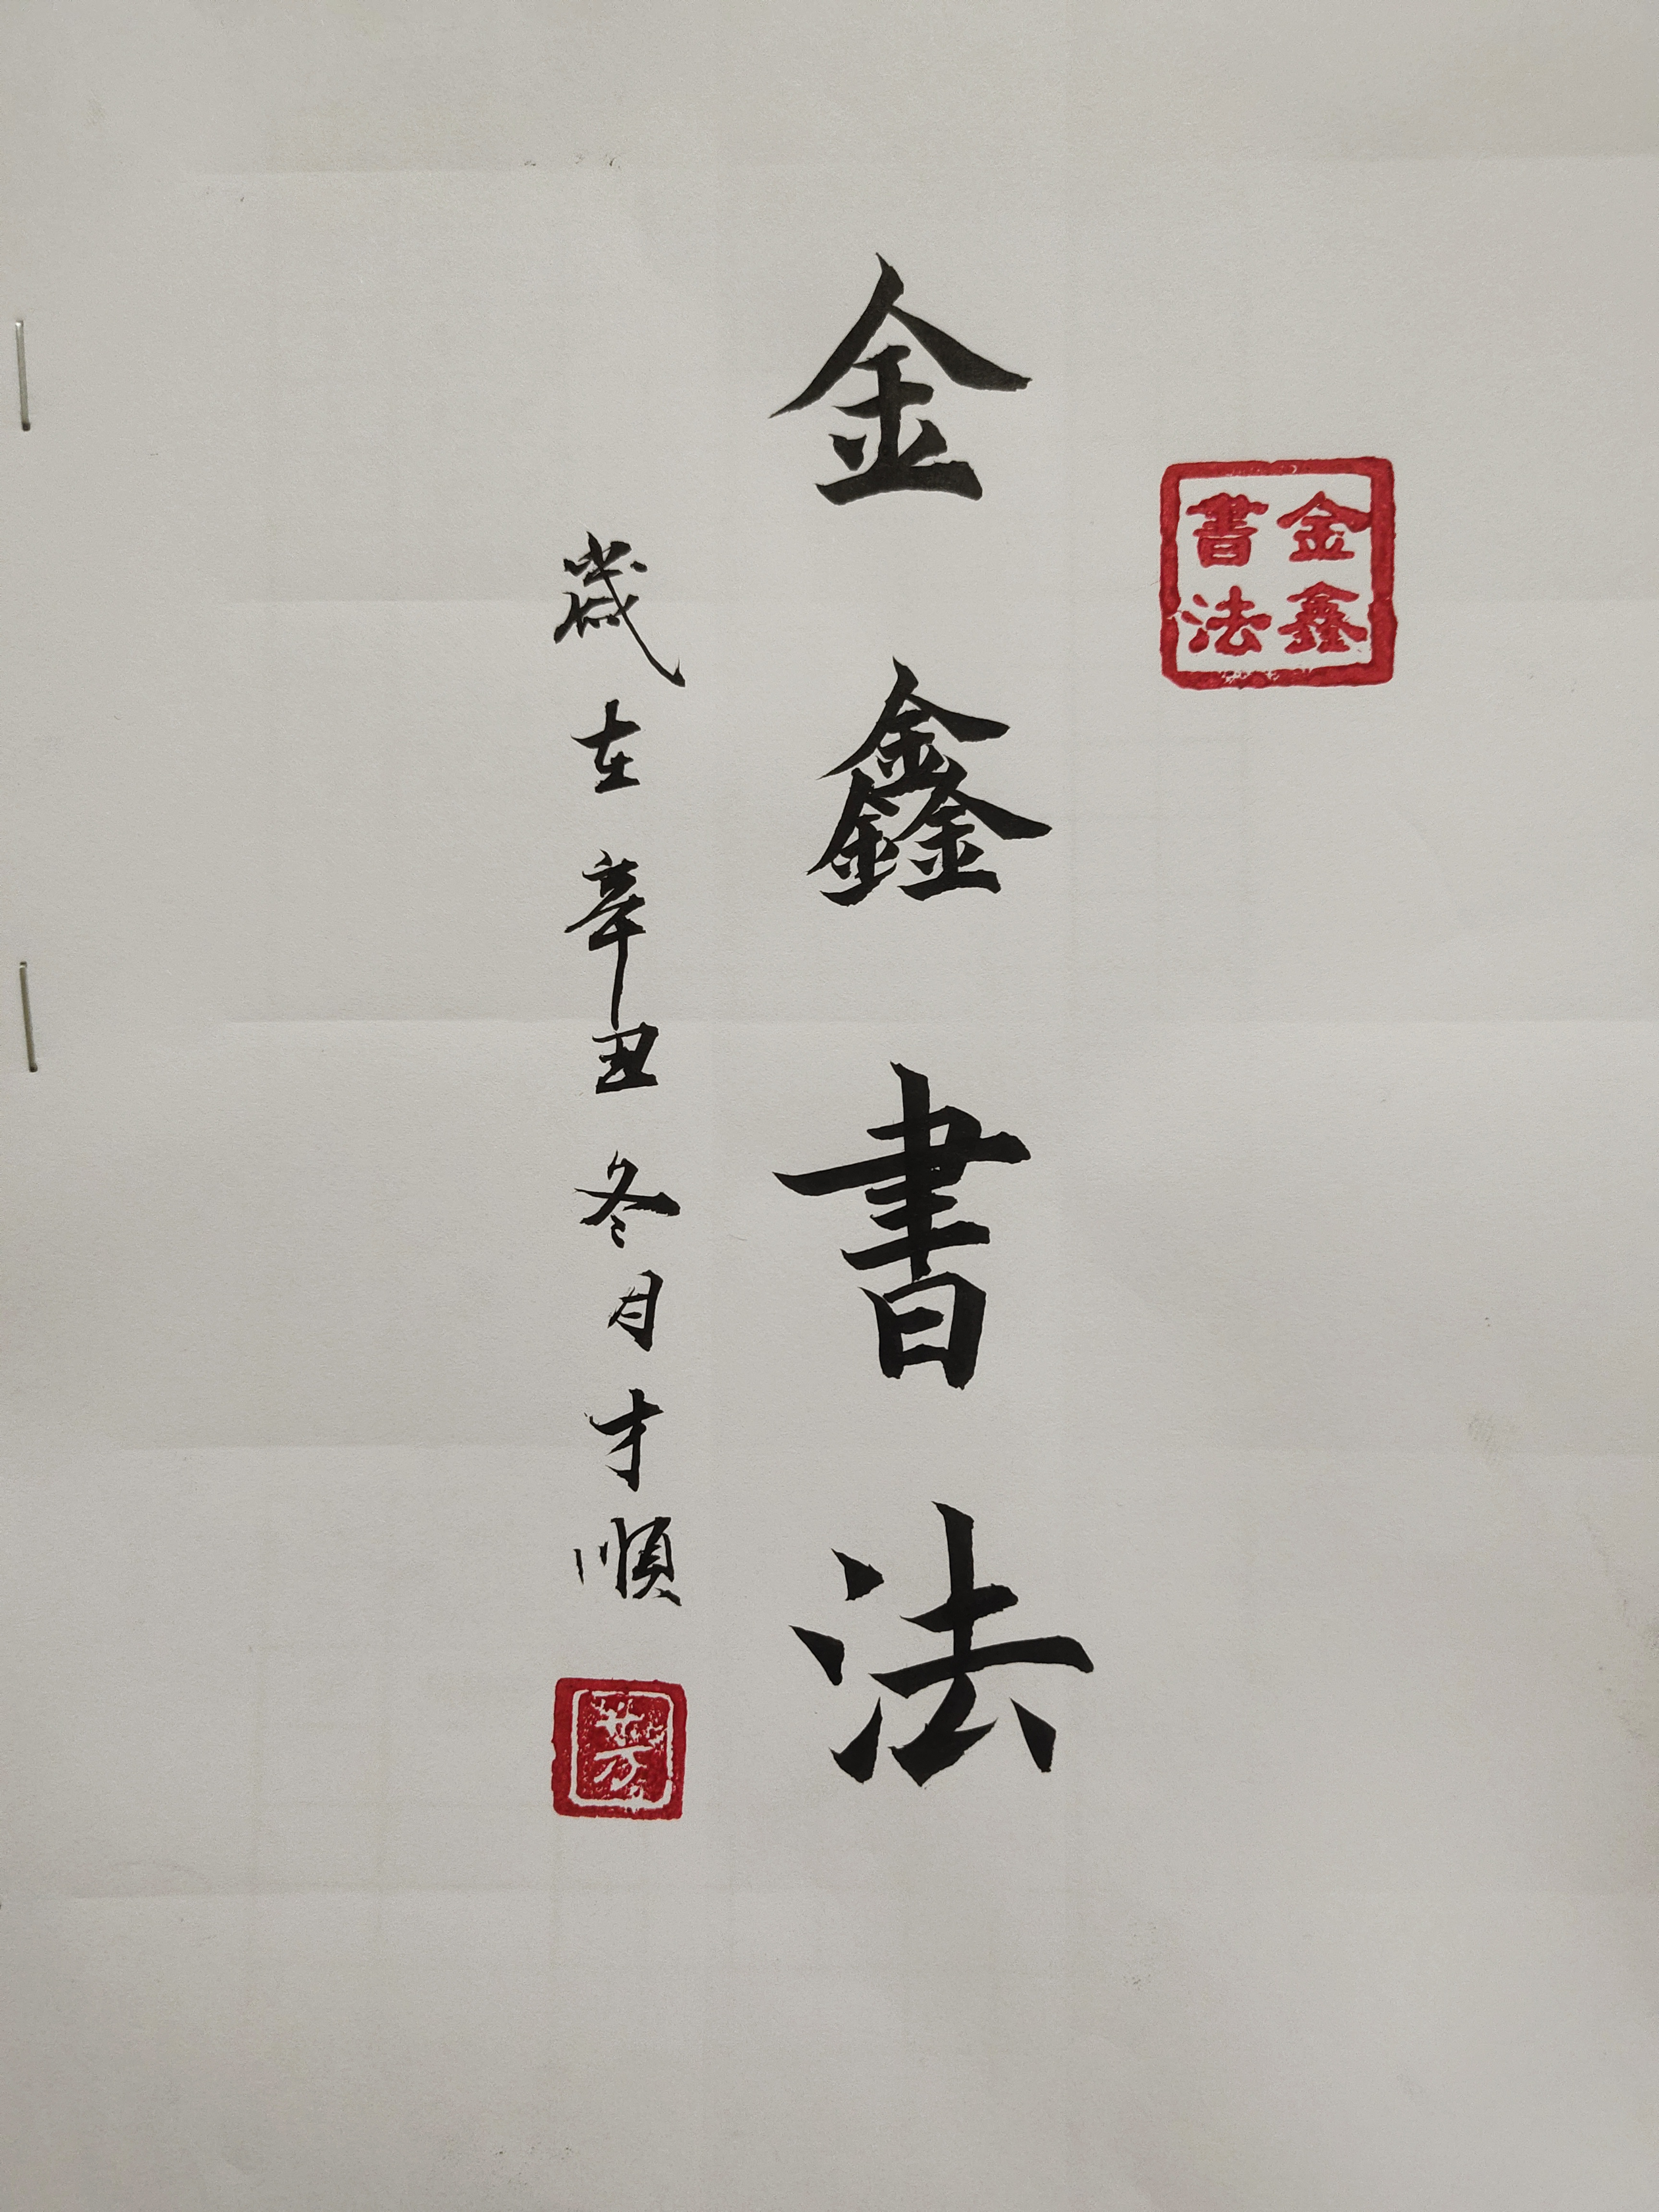 金鑫
書法
金鑫書法
歲在辛丑冬月才順
芳